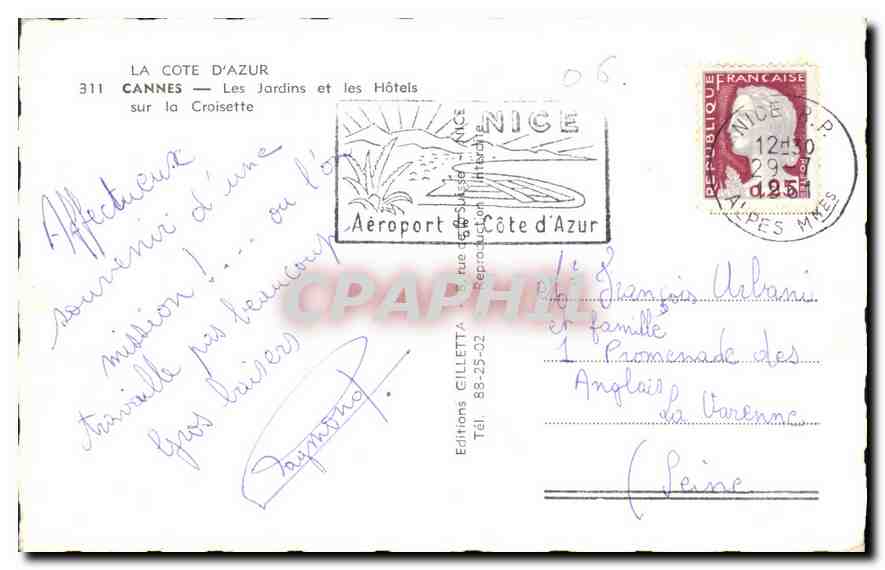 LA COTE D'AZUR
311 CANNES — Les Jardins et les Hôtels
sur la Croisette
06
Affectueux
souvenir d'une
mission!.... ou l'on
travaille pas beaucoup
Gros baisers
Raymond
NICE
Aéroport de Côte d'Azur
Editions GILLETTA 8, rue de Suisse - NICE
Tél. 88-25-02 Reproduction interdite
REPUBLIQUE FRANÇAISE
0,25
NICE R.P.
12H30
29
ALPES MMES
François Urbani
et famille
1 Promenade des
Anglais
La Varenne
(Seine
CPAPHIL